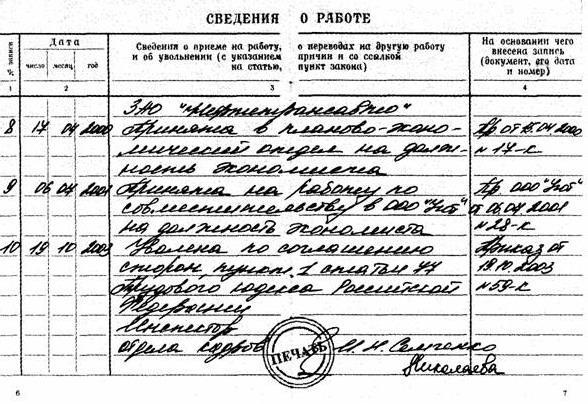 СВЕДЕНИЯ О РАБОТЕ
№ записи
Дата
Сведения о приеме на работу, о переводах на другую работу
и об увольнении (с указанием причин и со ссылкой
на статью, пункт закона)
На основании чего
внесена запись
(документ, его дата
и номер)
число месяц год
1 2 3 4
ЗАО "Нефтетрансавто"
8 17 04 2000 Принята в планово-эконо- Пр от 15.04.2000
мический отдел на долж- №17-к
ность экономиста
9 06 04 2001 Принята на работу по Пр ООО
совместительству в ООО от 06.04.2001
на должность экономиста №28-к
10 19 10 2003 Уволена по соглашению Приказ от
сторон пункт 1 статьи 77 19.10.2003
Трудового кодекса Российской №59-к
Федерации
Инспектор
отдела кадров ПЕЧАТЬ И. Н. Семченко
Николаева
6 7